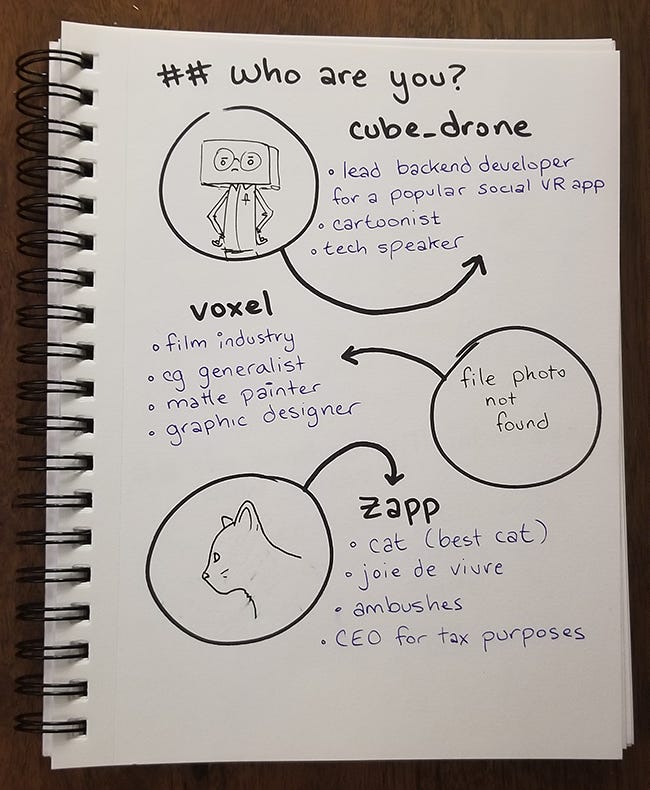 ## Who are you?
cube_drone
• lead backend developer
for a popular social VR app
• cartoonist
• tech speaker
voxel
• film industry
• cg generalist
• matte painter
• graphic designer
file photo
not
found
zapp
• cat (best cat)
• joie de vivre
• ambushes
• CEO for tax purposes